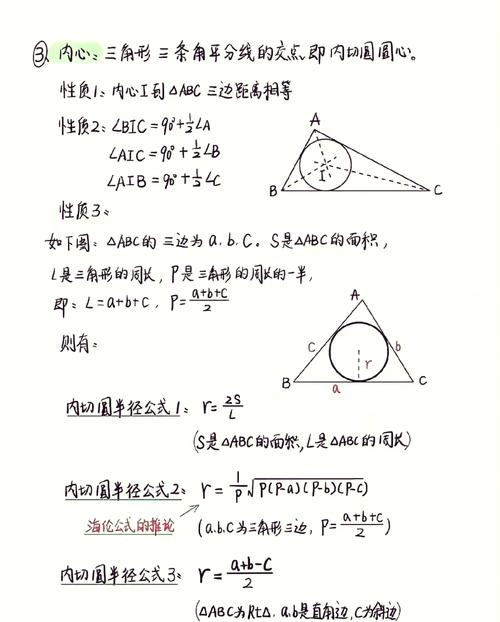 ③ 内心：三角形三条角平分线的交点，即内切圆圆心。
性质1：内心I到△ABC三边距离相等
性质2：∠BIC=90°+½∠A
∠AIC=90°+½∠B
∠AIB=90°+½∠C
A
I
B
C
性质3：
如下图：△ABC的三边为a.b.c。S是△ABC的面积，
L是三角形的周长，P是三角形的周长的一半，
即：L=a+b+c，P=(a+b+c)/2
则有：
A
c
b
r
B
a
C
内切圆半径公式1：r=2S/L
(S是△ABC的面积，L是△ABC的周长)
内切圆半径公式2：r=1/P√P(P-a)(P-b)(P-c)
海伦公式的推论
(a.b.c为三角形三边，P=(a+b+c)/2)
内切圆半径公式3：r=(a+b-c)/2
(△ABC为Rt△，a.b是直角边，c为斜边)